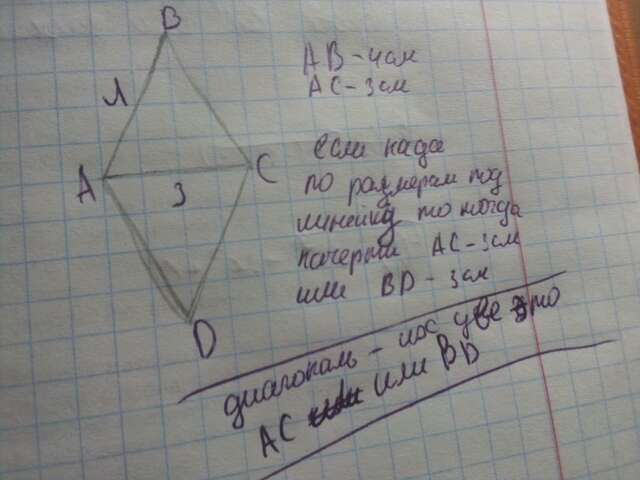 B
A
C
3
D
AB-4см
AC-3см
если надо
по размерам под
линейку то тогда
начерти AC-3см
или BD-3см
диагональ - две это
AC или BD